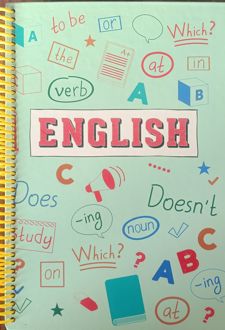 to be
or
Which?
A
the
A+
at
in
verb
A
B
ENGLISH
C
?
Does
Doesn't
-ing
study
noun
C
Which?
?
A
B
C
on
-ing
at
?